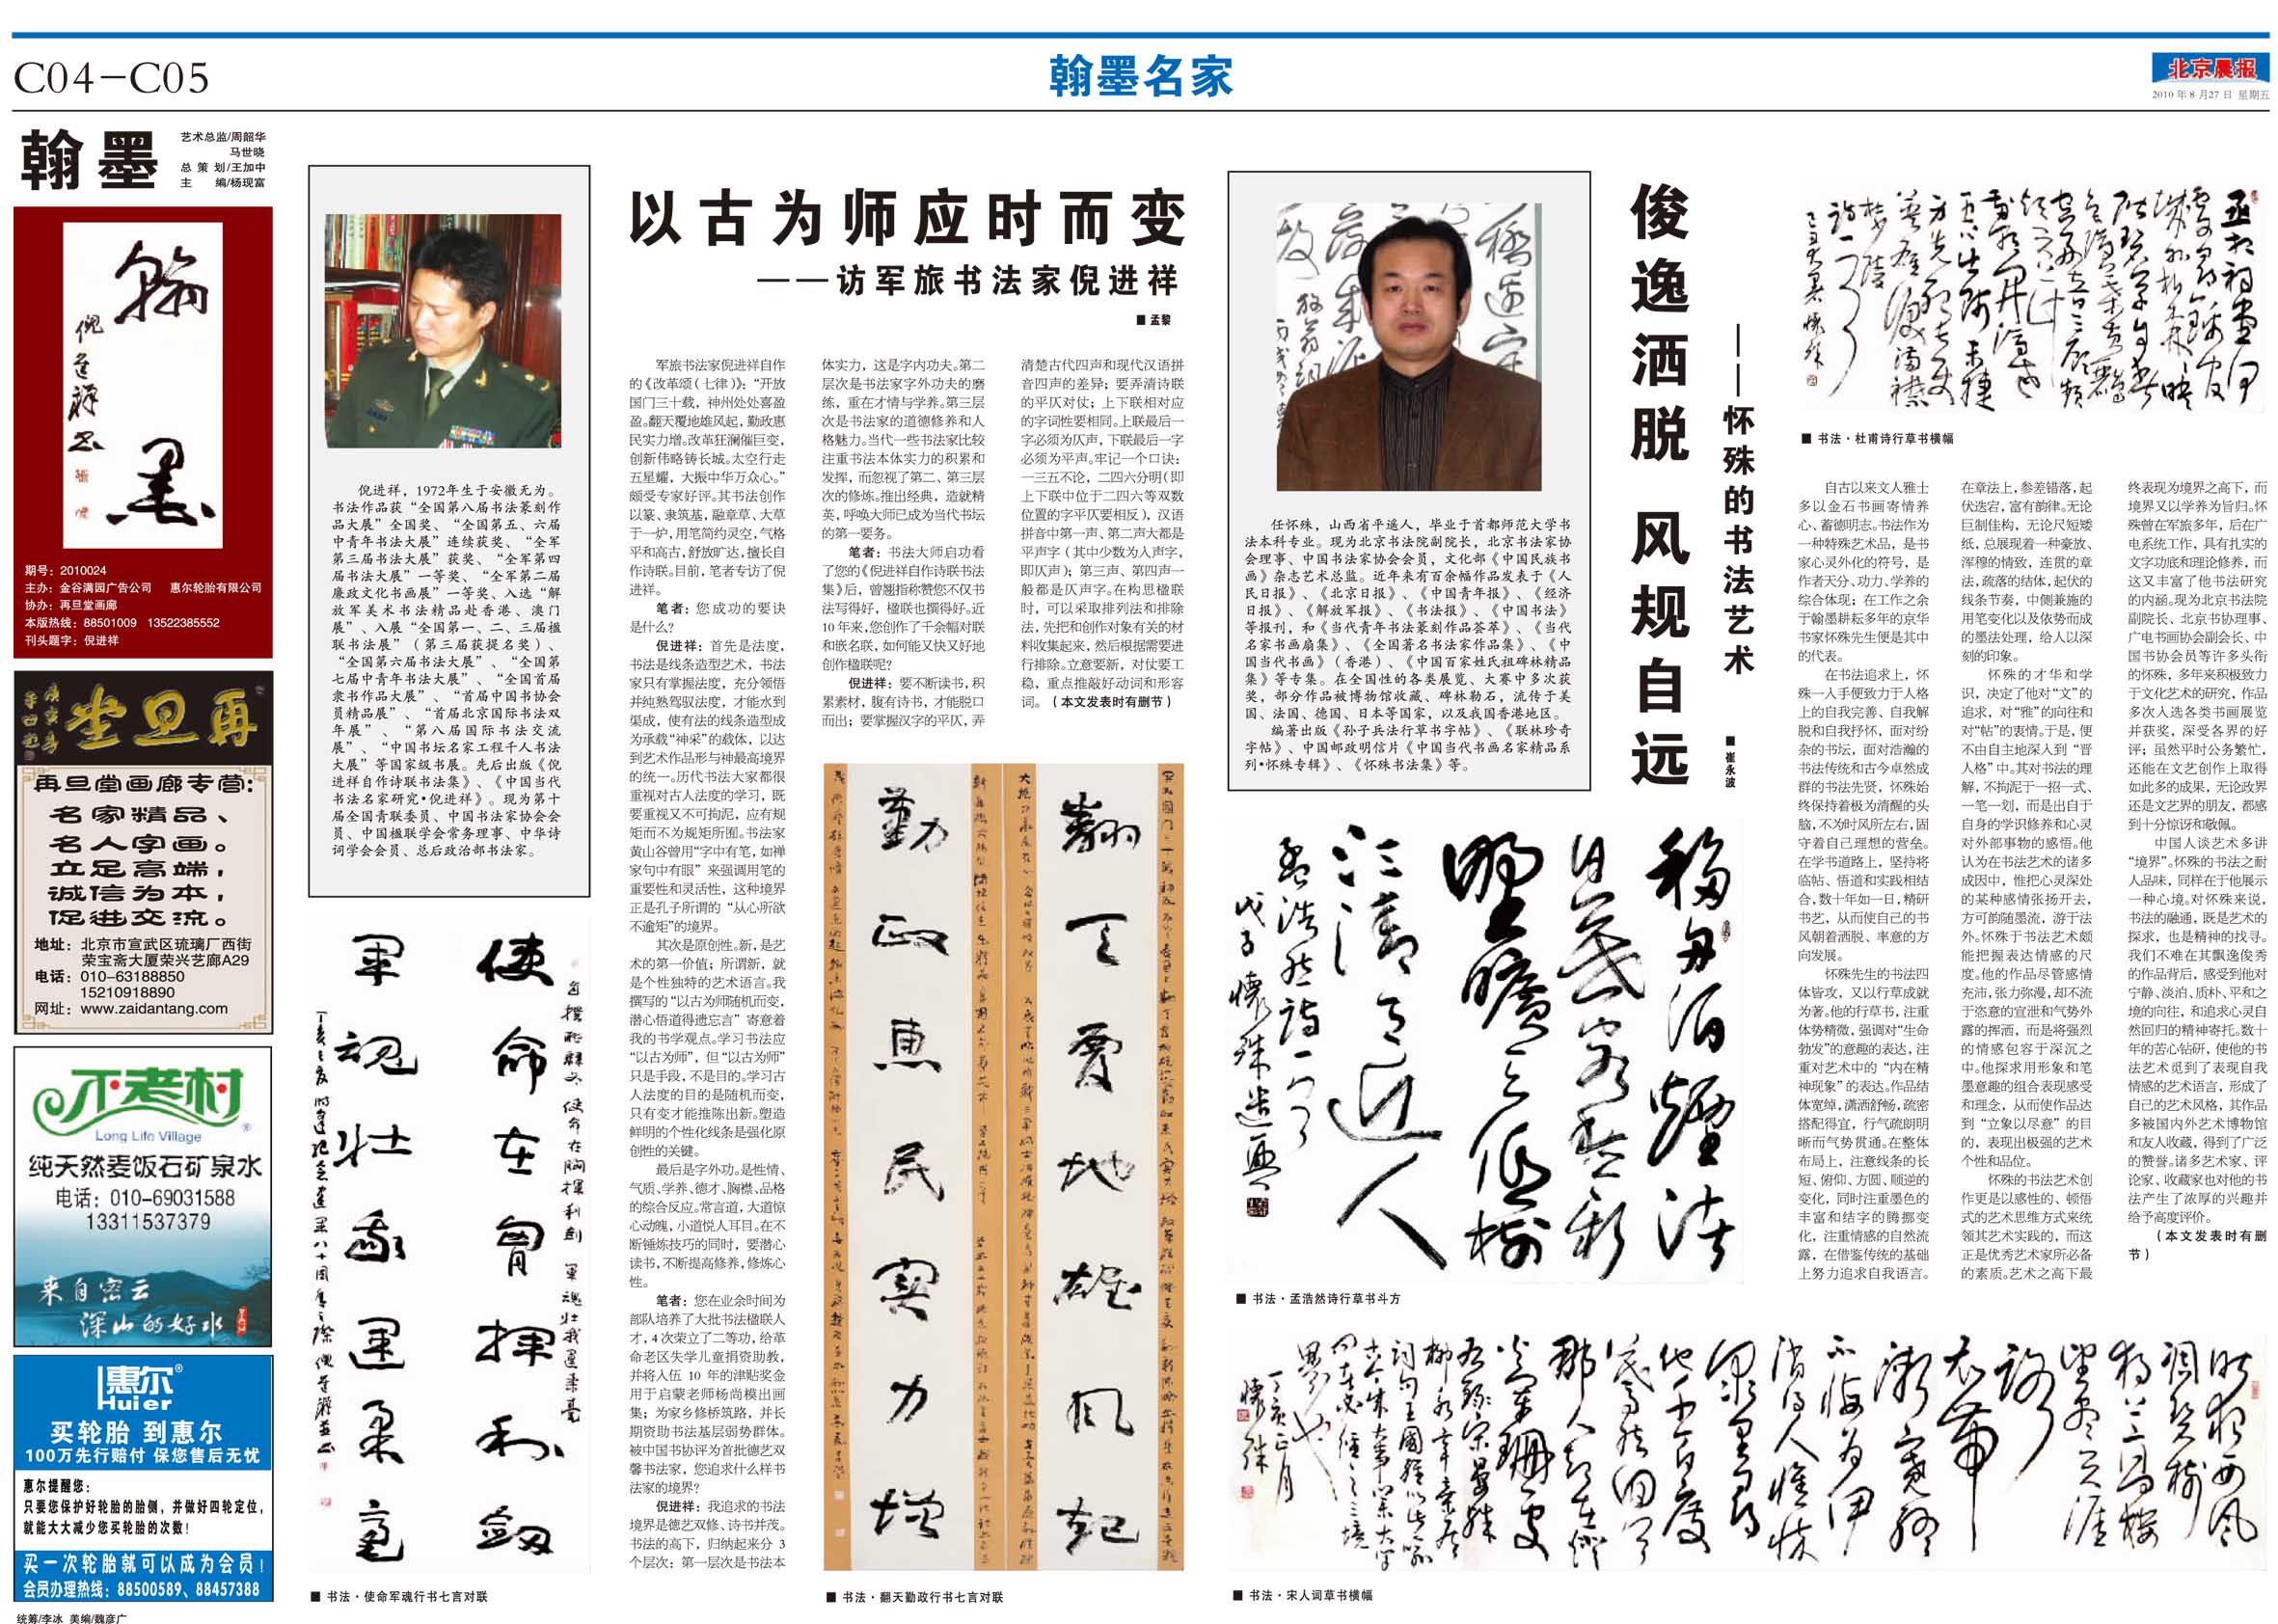 C04-C05
翰墨名家
北京晨报
2010年8月27日 星期五
翰墨
艺术总监/周韶华
马世晓
总策划/王加中
主 编/杨现富
翰墨
倪进祥
期号：2010024
主办：金谷满园广告公司 惠尔轮胎有限公司
协办：再旦堂画廊
本版热线：88501009 13522385552
刊头题字：倪进祥
再旦堂
再旦堂画廊专营：
名家精品、
名人字画。
立足高端，
诚信为本，
促进交流。
地址：北京市宣武区琉璃厂西街
荣宝斋大厦荣兴艺廊A29
电话：010-63188850
15210918890
网址：www.zaidantang.com
不老村
®
Long Life Village
纯天然麦饭石矿泉水
电话：010-69031588
13311537379
来自密云
深山的好水
惠尔®
Huier
买轮胎 到惠尔
100万先行赔付 保您售后无忧
惠尔提醒您：
只要您保护好轮胎的胎侧，并做好四轮定位，
就能大大减少您买轮胎的次数！
买一次轮胎就可以成为会员！
会员办理热线：88500589、88457388
统筹/李冰 美编/魏彦广
倪进祥，1972年生于安徽无为。
书法作品获“全国第八届书法篆刻作
品大展”全国奖、“全国第五、六届
中青年书法大展”连续获奖、“全军
第三届书法大展”获奖、“全军第四
届书法大展”一等奖、“全军第二届
廉政文化书画展”一等奖、入选“解
放军美术书法精品赴香港、澳门
展”、入展“全国第一、二、三届楹
联书法展”（第三届获提名奖）、
“全国第六届书法大展”、“全国第
七届中青年书法大展”、“全国首届
隶书作品大展”、“首届中国书协会
员精品展”、“首届北京国际书法双
年展”、“第八届国际书法交流
展”、“中国书坛名家工程千人书法
大展”等国家级书展。先后出版《倪
进祥自作诗联书法集》、《中国当代
书法名家研究•倪进祥》。现为第十
届全国青联委员、中国书法家协会会
员、中国楹联学会常务理事、中华诗
词学会会员、总后政治部书法家。
使命在胸挥利剑
军魂壮我运柔毫
■ 书法·使命军魂行书七言对联
以古为师应时而变
——访军旅书法家倪进祥
■ 孟黎
军旅书法家倪进祥自作
的《改革颂（七律）》：“开放
国门三十载，神州处处喜盈
盈。翻天覆地雄风起，勤政惠
民实力增。改革狂澜催巨变，
创新伟略铸长城。太空行走
五星耀，大振中华万众心。”
颇受专家好评。其书法创作
以篆、隶筑基，融章草、大草
于一炉，用笔简约灵空，气格
平和高古，舒放旷达，擅长自
作诗联。目前，笔者专访了倪
进祥。
笔者：您成功的要诀
是什么？
倪进祥：首先是法度，
书法是线条造型艺术，书法
家只有掌握法度，充分领悟
并纯熟驾驭法度，才能水到
渠成，使有法的线条造型成
为承载“神采”的载体，以达
到艺术作品形与神最高境界
的统一。历代书法大家都很
重视对古人法度的学习，既
要重视又不可拘泥，应有规
矩而不为规矩所囿。书法家
黄山谷曾用“字中有笔，如禅
家句中有眼”来强调用笔的
重要性和灵活性，这种境界
正是孔子所谓的“从心所欲
不逾矩”的境界。
其次是原创性。新，是艺
术的第一价值；所谓新，就
是个性独特的艺术语言。我
撰写的“以古为师随机而变，
潜心悟道得遗忘言”寄意着
我的书学观点。学习书法应
“以古为师”，但“以古为师”
只是手段，不是目的。学习古
人法度的目的是随机而变，
只有变才能推陈出新。塑造
鲜明的个性化线条是强化原
创性的关键。
最后是字外功。是性情、
气质、学养、德才、胸襟、品格
的综合反应。常言道，大道惊
心动魄，小道悦人耳目。在不
断锤炼技巧的同时，要潜心
读书，不断提高修养，修炼心
性。
笔者：您在业余时间为
部队培养了大批书法楹联人
才，4次荣立了二等功，给革
命老区失学儿童捐资助教，
并将入伍 10 年的津贴奖金
用于启蒙老师杨尚模出画
集；为家乡修桥筑路，并长
期资助书法基层弱势群体。
被中国书协评为首批德艺双
馨书法家，您追求什么样书
法家的境界？
倪进祥：我追求的书法
境界是德艺双修、诗书并茂。
书法的高下，归纳起来分 3
个层次：第一层次是书法本
体实力，这是字内功夫。第二
层次是书法家字外功夫的磨
练，重在才情与学养。第三层
次是书法家的道德修养和人
格魅力。当代一些书法家比较
注重书法本体实力的积累和
发挥，而忽视了第二、第三层
次的修炼。推出经典，造就精
英，呼唤大师已成为当代书坛
的第一要务。
笔者：书法大师启功看
了您的《倪进祥自作诗联书法
集》后，曾翘指称赞您不仅书
法写得好，楹联也撰得好。近
10年来，您创作了千余幅对联
和嵌名联，如何能又快又好地
创作楹联呢？
倪进祥：要不断读书，积
累素材，腹有诗书，才能脱口
而出；要掌握汉字的平仄，弄
清楚古代四声和现代汉语拼
音四声的差异；要弄清诗联
的平仄对仗；上下联相对应
的字词性要相同。上联最后一
字必须为仄声，下联最后一字
必须为平声。牢记一个口诀：
一三五不论，二四六分明（即
上下联中位于二四六等双数
位置的字平仄要相反），汉语
拼音中第一声、第二声大都是
平声字（其中少数为入声字，
即仄声）；第三声、第四声一
般都是仄声字。在构思楹联
时，可以采取排列法和排除
法，先把和创作对象有关的材
料收集起来，然后根据需要进
行排除。立意要新，对仗要工
稳，重点推敲好动词和形容
词。（本文发表时有删节）
翻天覆地雄风起
勤政惠民实力增
■ 书法·翻天勤政行书七言对联
任怀殊，山西省平遥人，毕业于首都师范大学书
法本科专业。现为北京书法院副院长，北京书法家协
会理事、中国书法家协会会员，文化部《中国民族书
画》杂志艺术总监。近年来有百余幅作品发表于《人
民日报》、《北京日报》、《中国青年报》、《经济
日报》、《解放军报》、《书法报》、《中国书法》
等报刊，和《当代青年书法篆刻作品荟萃》、《当代
名家书画扇集》、《全国著名书法家作品集》、《中
国当代书画》（香港）、《中国百家姓氏祖碑林精品
集》等专集。在全国性的各类展览、大赛中多次获
奖，部分作品被博物馆收藏、碑林勒石，流传于美
国、法国、德国、日本等国家，以及我国香港地区。
编著出版《孙子兵法行草书字帖》、《联林珍奇
字帖》、中国邮政明信片《中国当代书画名家精品系
列•怀殊专辑》、《怀殊书法集》等。
俊逸洒脱 风规自远
——怀殊的书法艺术
■ 崔永波
移舟泊烟渚
日暮客愁新
野旷天低树
江清月近人
孟浩然诗一首
戊子怀殊遣兴
■ 书法·孟浩然诗行草书斗方
■ 书法·杜甫诗行草书横幅
自古以来文人雅士
多以金石书画寄情养
心、蓄德明志。书法作为
一种特殊艺术品，是书
家心灵外化的符号，是
作者天分、功力、学养的
综合体现；在工作之余
于翰墨耕耘多年的京华
书家怀殊先生便是其中
的代表。
在书法追求上，怀
殊一入手便致力于人格
上的自我完善、自我解
脱和自我抒怀，面对纷
杂的书坛，面对浩瀚的
书法传统和古今卓然成
群的书法先贤，怀殊始
终保持着极为清醒的头
脑，不为时风所左右，固
守着自己理想的营垒。
在学书道路上，坚持将
临帖、悟道和实践相结
合，数十年如一日，精研
书艺，从而使自己的书
风朝着洒脱、率意的方
向发展。
怀殊先生的书法四
体皆攻，又以行草成就
为著。他的行草书，注重
体势精微，强调对“生命
勃发”的意趣的表达，注
重对艺术中的“内在精
神现象”的表达。作品结
体宽绰，潇洒舒畅，疏密
搭配得宜，行气疏朗明
晰而气势贯通。在整体
布局上，注意线条的长
短、俯仰、方圆、顺逆的
变化，同时注重墨色的
丰富和结字的腾挪变
化，注重情感的自然流
露，在借鉴传统的基础
上努力追求自我语言。
在章法上，参差错落，起
伏迭宕，富有韵律。无论
巨制佳构，无论尺短矮
纸，总展现着一种豪放、
浑穆的情致，连贯的章
法，疏落的结体，起伏的
线条节奏，中侧兼施的
用笔变化以及依势而成
的墨法处理，给人以深
刻的印象。
怀殊的才华和学
识，决定了他对“文”的
追求，对“雅”的向往和
对“帖”的衷情。于是，便
不由自主地深入到“晋
人格”中。其对书法的理
解，不拘泥于一招一式、
一笔一划，而是出自于
自身的学识修养和心灵
对外部事物的感悟。他
认为在书法艺术的诸多
成因中，惟把心灵深处
的某种感情张扬开去，
方可韵随墨流，游于法
外。怀殊于书法艺术颇
能把握表达情感的尺
度。他的作品尽管感情
充沛，张力弥漫，却不流
于恣意的宣泄和气势外
露的挥洒，而是将强烈
的情感包容于深沉之
中。他探求用形象和笔
墨意趣的组合表现感受
和理念，从而使作品达
到“立象以尽意”的目
的，表现出极强的艺术
个性和品位。
怀殊的书法艺术创
作更是以感性的、顿悟
式的艺术思维方式来统
领其艺术实践的，而这
正是优秀艺术家所必备
的素质。艺术之高下最
终表现为境界之高下，而
境界又以学养为旨归。怀
殊曾在军旅多年，后在广
电系统工作，具有扎实的
文字功底和理论修养，而
这又丰富了他书法研究
的内涵。现为北京书法院
副院长、北京书协理事、
广电书画协会副会长、中
国书协会员等许多头衔
的怀殊，多年来积极致力
于文化艺术的研究，作品
多次入选各类书画展览
并获奖，深受各界的好
评；虽然平时公务繁忙，
还能在文艺创作上取得
如此多的成果，无论政界
还是文艺界的朋友，都感
到十分惊讶和敬佩。
中国人谈艺术多讲
“境界”。怀殊的书法之耐
人品味，同样在于他展示
一种心境。对怀殊来说，
书法的融通，既是艺术的
探求，也是精神的找寻。
我们不难在其飘逸俊秀
的作品背后，感受到他对
宁静、淡泊、质朴、平和之
境的向往，和追求心灵自
然回归的精神寄托。数十
年的苦心钻研，使他的书
法艺术觅到了表现自我
情感的艺术语言，形成了
自己的艺术风格，其作品
多被国内外艺术博物馆
和友人收藏，得到了广泛
的赞誉。诸多艺术家、评
论家、收藏家也对他的书
法产生了浓厚的兴趣并
给予高度评价。
（本文发表时有删
节）
■ 书法·宋人词草书横幅